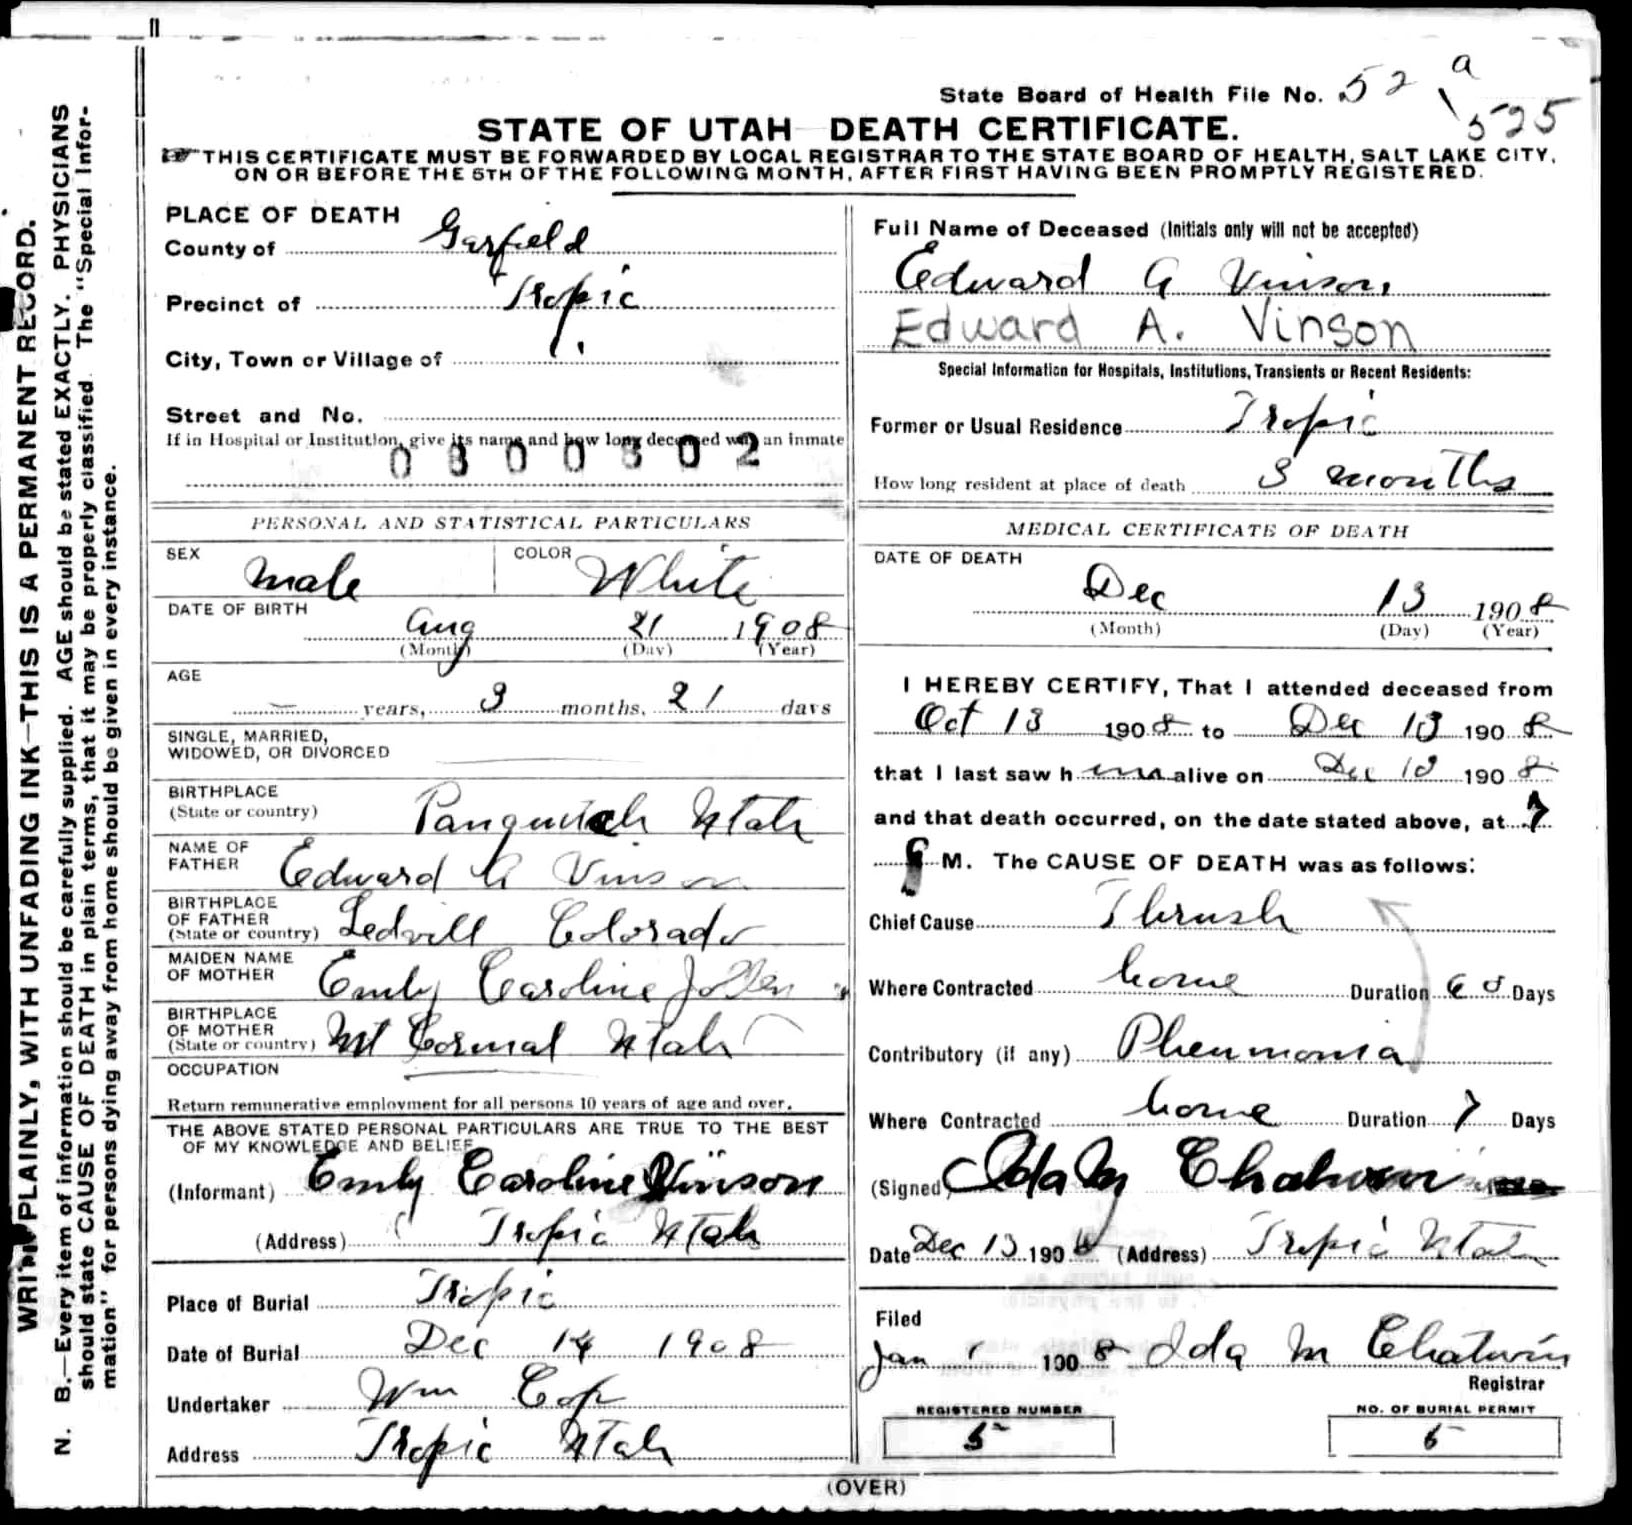 State Board of Health File No. 52 a
525
STATE OF UTAH DEATH CERTIFICATE.
THIS CERTIFICATE MUST BE FORWARDED BY LOCAL REGISTRAR TO THE STATE BOARD OF HEALTH, SALT LAKE CITY,
ON OR BEFORE THE 5TH OF THE FOLLOWING MONTH, AFTER FIRST HAVING BEEN PROMPTLY REGISTERED.
WRITE PLAINLY, WITH UNFADING INK—THIS IS A PERMANENT RECORD.
N. B.—Every item of information should be carefully supplied. AGE should be stated EXACTLY. PHYSICIANS
should state CAUSE OF DEATH in plain terms, that it may be properly classified. The "Special Infor-
mation" for persons dying away from home should be given in every instance.
PLACE OF DEATH
County of Garfield
Precinct of Tropic
City, Town or Village of
Street and No.
If in Hospital or Institution, give its name and how long deceased was an inmate
0300302
PERSONAL AND STATISTICAL PARTICULARS
SEX Male COLOR White
DATE OF BIRTH
Aug 21 1908
(Month) (Day) (Year)
AGE
— years, 3 months, 21 days
SINGLE, MARRIED,
WIDOWED, OR DIVORCED
BIRTHPLACE
(State or country) Panguitch Utah
NAME OF
FATHER Edward A Vinson
BIRTHPLACE
OF FATHER
(State or country) Ledvill Colorado
MAIDEN NAME
OF MOTHER Emly Caroline
BIRTHPLACE
OF MOTHER
(State or country) Mt Cormal Utah
OCCUPATION
Return remunerative employment for all persons 10 years of age and over.
THE ABOVE STATED PERSONAL PARTICULARS ARE TRUE TO THE BEST
OF MY KNOWLEDGE AND BELIEF
(Informant) Emly Caroline Vinson
(Address) Tropic Utah
Place of Burial Tropic
Date of Burial Dec 14 1908
Undertaker Wm Cop
Address Tropic Utah
Full Name of Deceased (Initials only will not be accepted)
Edward A Vinson
Edward A. Vinson
Special Information for Hospitals, Institutions, Transients or Recent Residents:
Former or Usual Residence Tropic
How long resident at place of death 3 months
MEDICAL CERTIFICATE OF DEATH
DATE OF DEATH
Dec 13 1908
(Month) (Day) (Year)
I HEREBY CERTIFY, That I attended deceased from
Oct 13 1908 to Dec 13 1908
that I last saw him alive on Dec 13 1908
and that death occurred, on the date stated above, at 7
P M. The CAUSE OF DEATH was as follows:
Chief Cause Thrush
Where Contracted home Duration 60 Days
Contributory (if any) Pheumonia
Where Contracted home Duration 7 Days
(Signed) Ida M Chatwin
Date Dec 13 1908 (Address) Tropic Utah
Filed
Jan 1 1908 Ida M Chatwin
Registrar
REGISTERED NUMBER
5
NO. OF BURIAL PERMIT
5
(OVER)